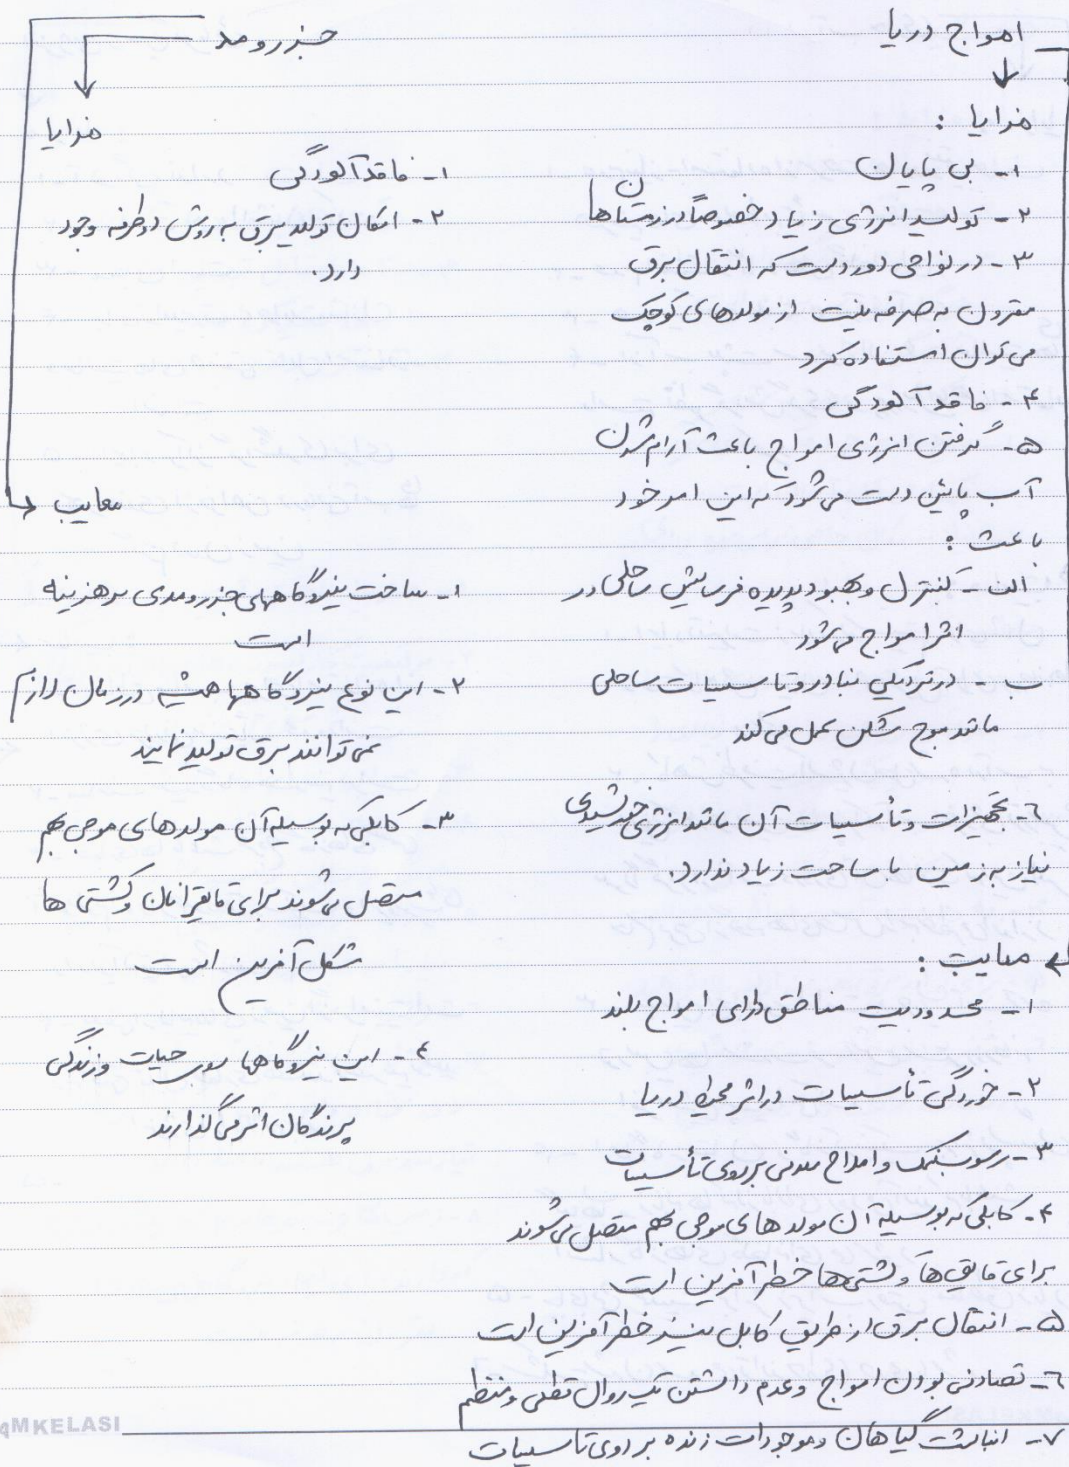 امواج دریا
مزایا :
۱- بی پایان
۲- تولید انرژی زیاد خصوصاً در زمستانها
۳- در نواحی دوردست که انتقال برق
مقرون به صرفه نیست از مولدهای کوچک
می توان استفاده کرد
۴- فاقد آلودگی
۵- گرفتن انرژی امواج باعث آرام شدن
آب پائین دست می شود که این امر خود
باعث :
الف - کنترل و بهبود پدیده فرسایش ساحلی در
اثر امواج می شود
ب - در نزدیکی بنادر و تاسسیات ساحلی
مانند موج شکن عمل می کند
۶- تجهیزات و تأسیسات آن مانند انرژی خورشیدی
نیاز به زمین با ساحت زیاد ندارد.
معایب :
۱- محدودیت مناطق دارای امواج بلند
۲- خوردگی تأسیسات در اثر محیط دریا
۳- رسوب نمک و املاح معدنی بر روی تأسیسات
۴- کابلی که بوسیله آن مولدهای موجی بهم متصل می شوند
برای قایق ها و کشتی ها خطر آفرین است
۵- انتقال برق از طریق کابل نیز خطر آفرین است
۶- تصادفی بودن امواج و عدم داشتن یک روال قطعی و منظم
۷- انباشت گیاهان و موجودات زنده بر روی تاسسیات
جزر و مد
مزایا
۱- فاقد آلودگی
۲- امکان تولید برق به روش دو طرفه وجود
دارد.
معایب
۱- ساخت نیروگاههای جزر و مدی پر هزینه
است
۲- این نوع نیروگاهها همیشه در زمان لازم
نمی توانند برق تولید نمایند
۳- کابلی که بوسیله آن مولدهای موجی بهم
متصل می شوند برای قایقرانان و کشتی ها
مشکل آفرین است
۴- این نیروگاهها روی حیات و زندگی
پرندگان اثر می گذارند
AMKELASI